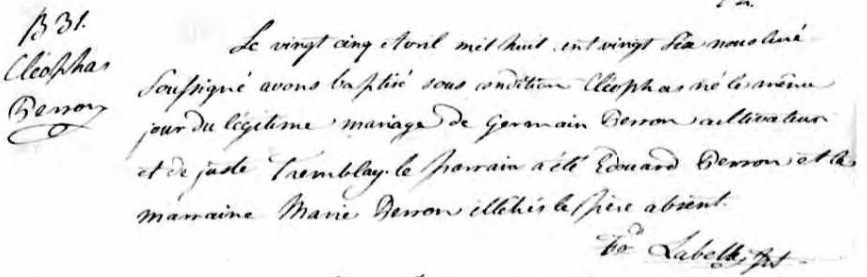 B 31.
Cléophas
Perron
Le vingt cinq Avril mil huit cent vingt six nous Curé
Soussigné avons baptisé sous condition Cléophas né le même
jour du légitime mariage de Germain Perron cultivateur
et de juste Tremblay. le parrain a été Edouard Perron et la
marraine Marie Perron illétrés le père absent.
Labelle